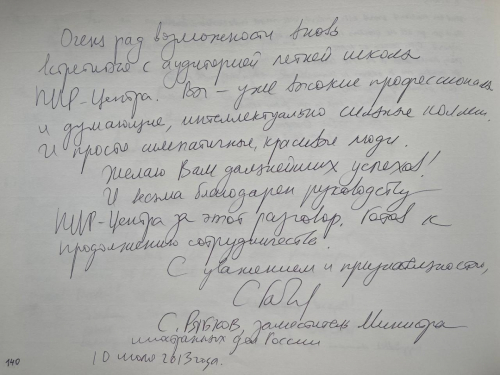 Очень рад возможности вновь
встретится с аудиторией летней школы
ПИР-Центра. Вы – уже высокие профессионалы
и думающие, интеллектуально сильные коллеги.
И просто симпатичные, красивые люди.
Желаю Вам дальнейших успехов!
И весьма благодарен руководству
ПИР-Центра за этот разговор. Готов к
продолжению сотрудничества.
С уважением и признательностью,
С. Рябков, заместитель Министра
иностранных дел России
10 июля 2013 года.
140